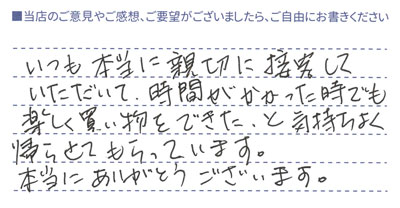 ■当店のご意見やご感想、ご要望がございましたら、ご自由にお書きください
いつも本当に親切に接客して
いただいて、時間がかかった時でも
楽しく買い物をできた、と気持ちよく
帰らせてもらっています。
本当にありがとうございます。